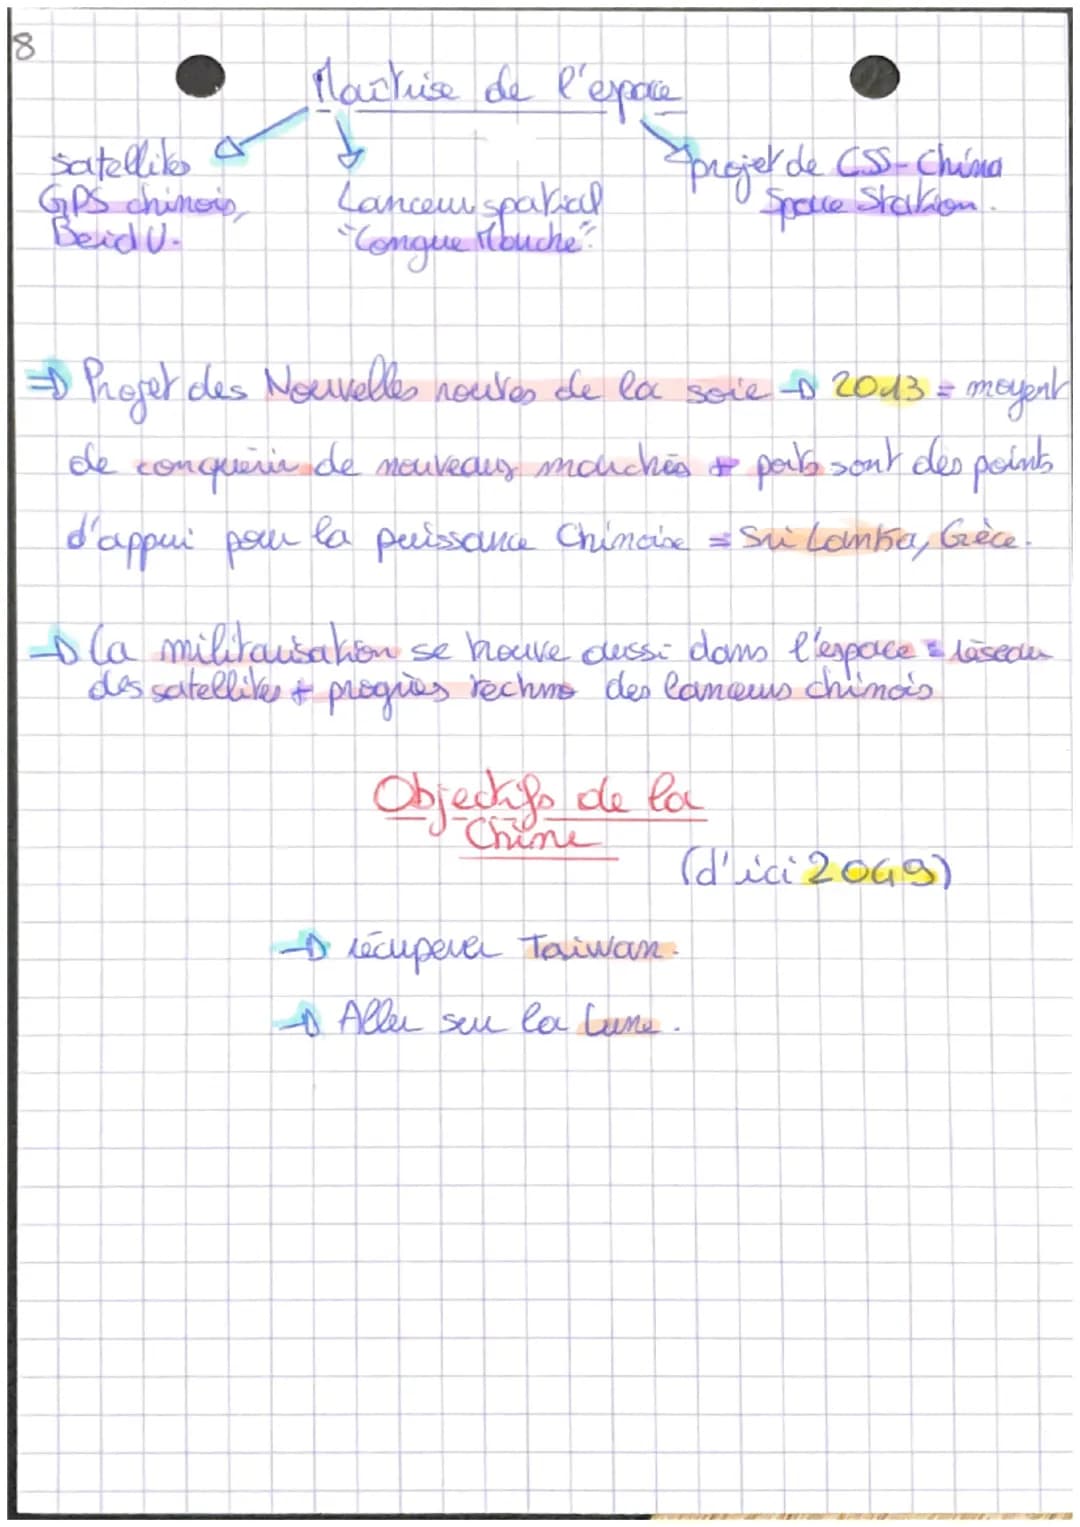 8
Maîtrise de l'espace
satellites
GPS chinois,
BeidU.
Lanceur spatial
"Longue Mouche".
projet de CSS-China
Space Station.
⇒ Projet des Nouvelles routes de la soie → 2013 = moyent
de conquérir de nouveaux marchés + ports sont des points
d'appui pour la puissance Chinoise = Sri Lanka, Grèce.
→ La militarisation se trouve aussi dans l'espace = réseau
des satellites + progrès techno des lanceurs chinois
Objectifs de la
Chine
(d'ici 2049)
→ récuperer Taiwan.
→ Aller sur la Lune.